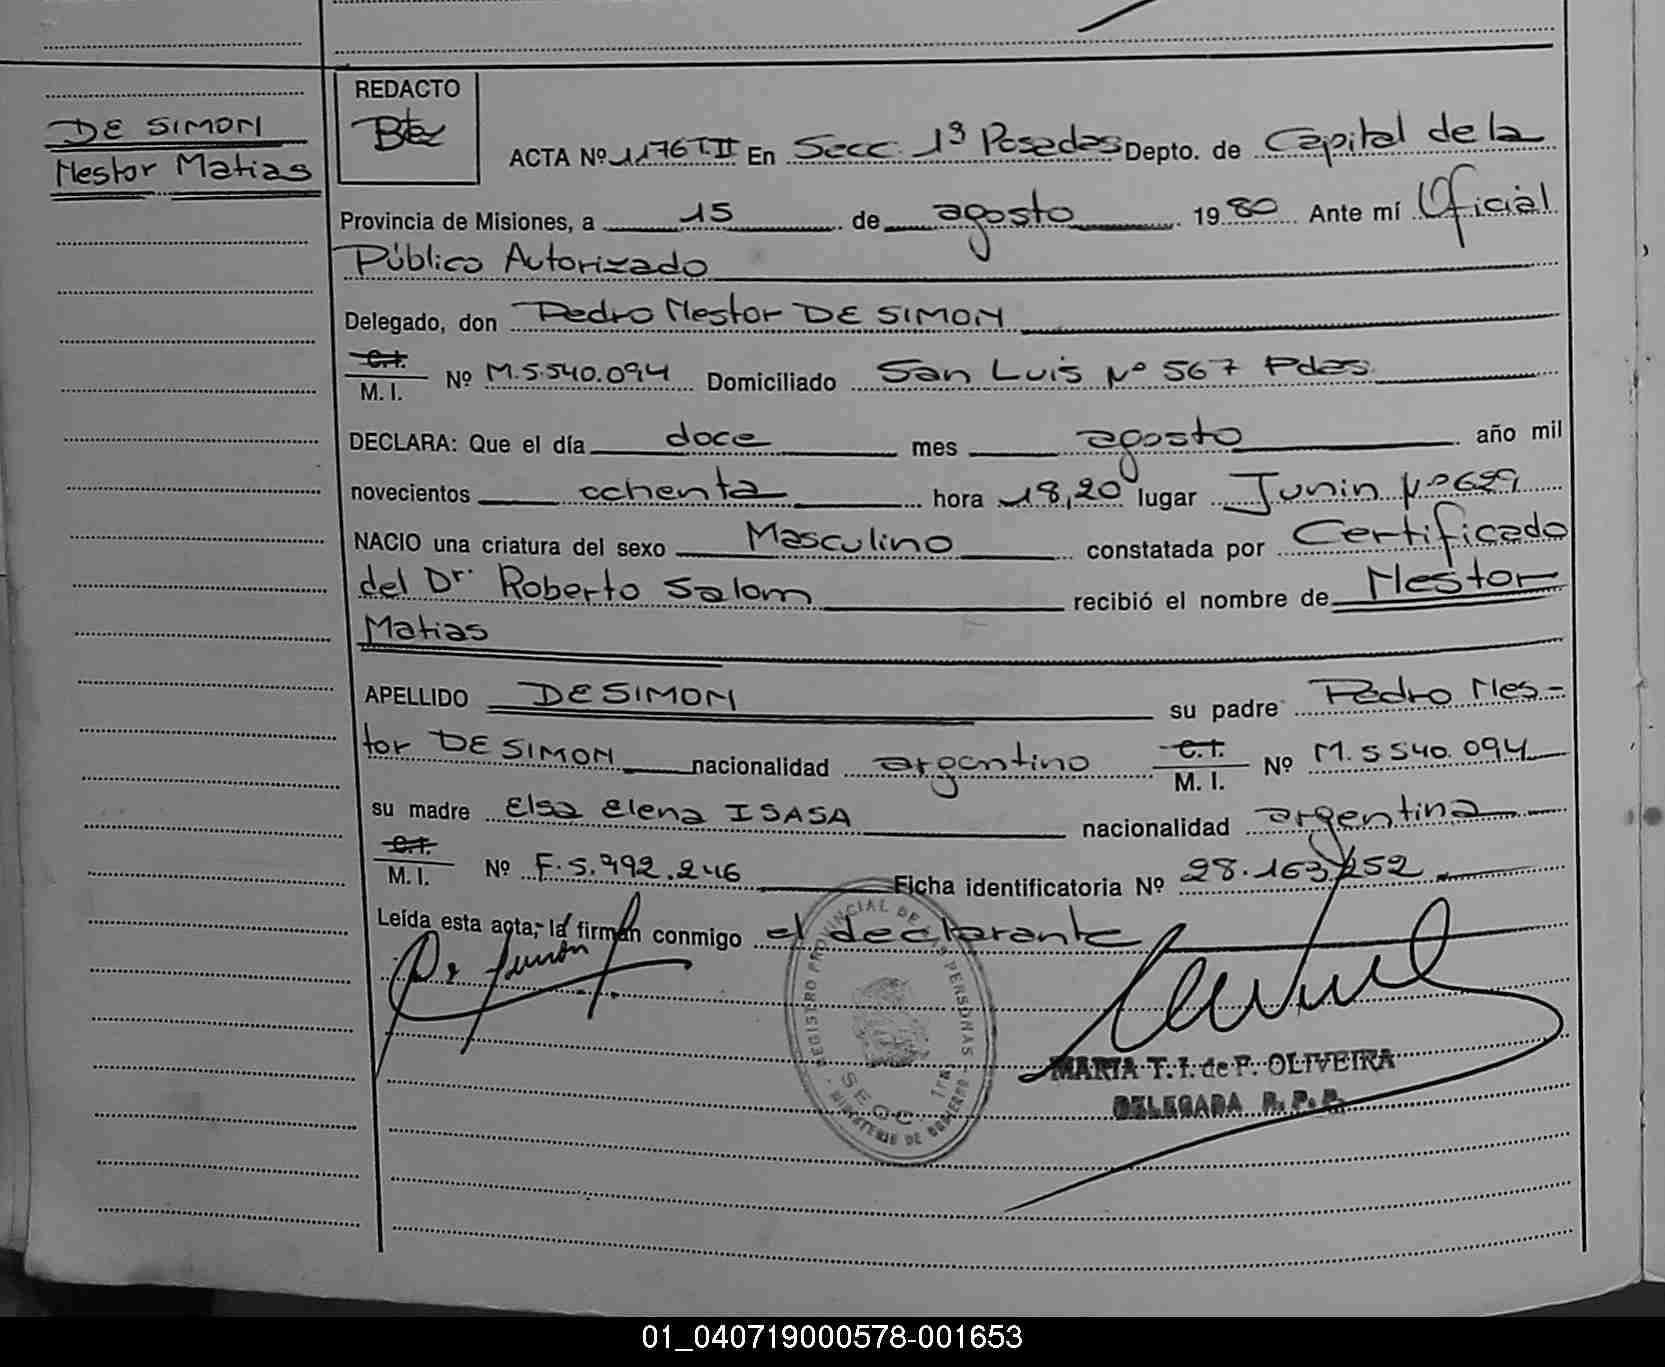 DE SIMON
Nestor Matias
REDACTO
ACTA Nº 1176 T.II En Secc. 1ª Posadas Depto. de Capital de la
Provincia de Misiones, a 15 de agosto 1980 Ante mí Oficial
Público Autorizado
Delegado, don Pedro Nestor DE SIMON
C.I.
M. I. Nº M.5.540.094 Domiciliado San Luis Nº 567 Pdas.
DECLARA: Que el día doce mes agosto año mil
novecientos ochenta hora 18,20 lugar Junin Nº 629
NACIO una criatura del sexo Masculino constatada por Certificado
del Dr. Roberto Salom recibió el nombre de Nestor
Matias
APELLIDO DE SIMON su padre Pedro Nes-
tor DE SIMON nacionalidad argentino C.I. M. I. Nº M.5540.094
su madre Elsa Elena ISASA nacionalidad argentina
C.I.
M. I. Nº F.5.992.246 Ficha identificatoria Nº 28.163.252
Leída esta acta, la firman conmigo el declarante
De Simón
REGISTRO PROVINCIAL DE LAS PERSONAS
SECC. 1ra
MINISTERIO DE GOBIERNO
MARIA T. I. de F. OLIVEIRA
DELEGADA R. P. P.
01_040719000578-001653